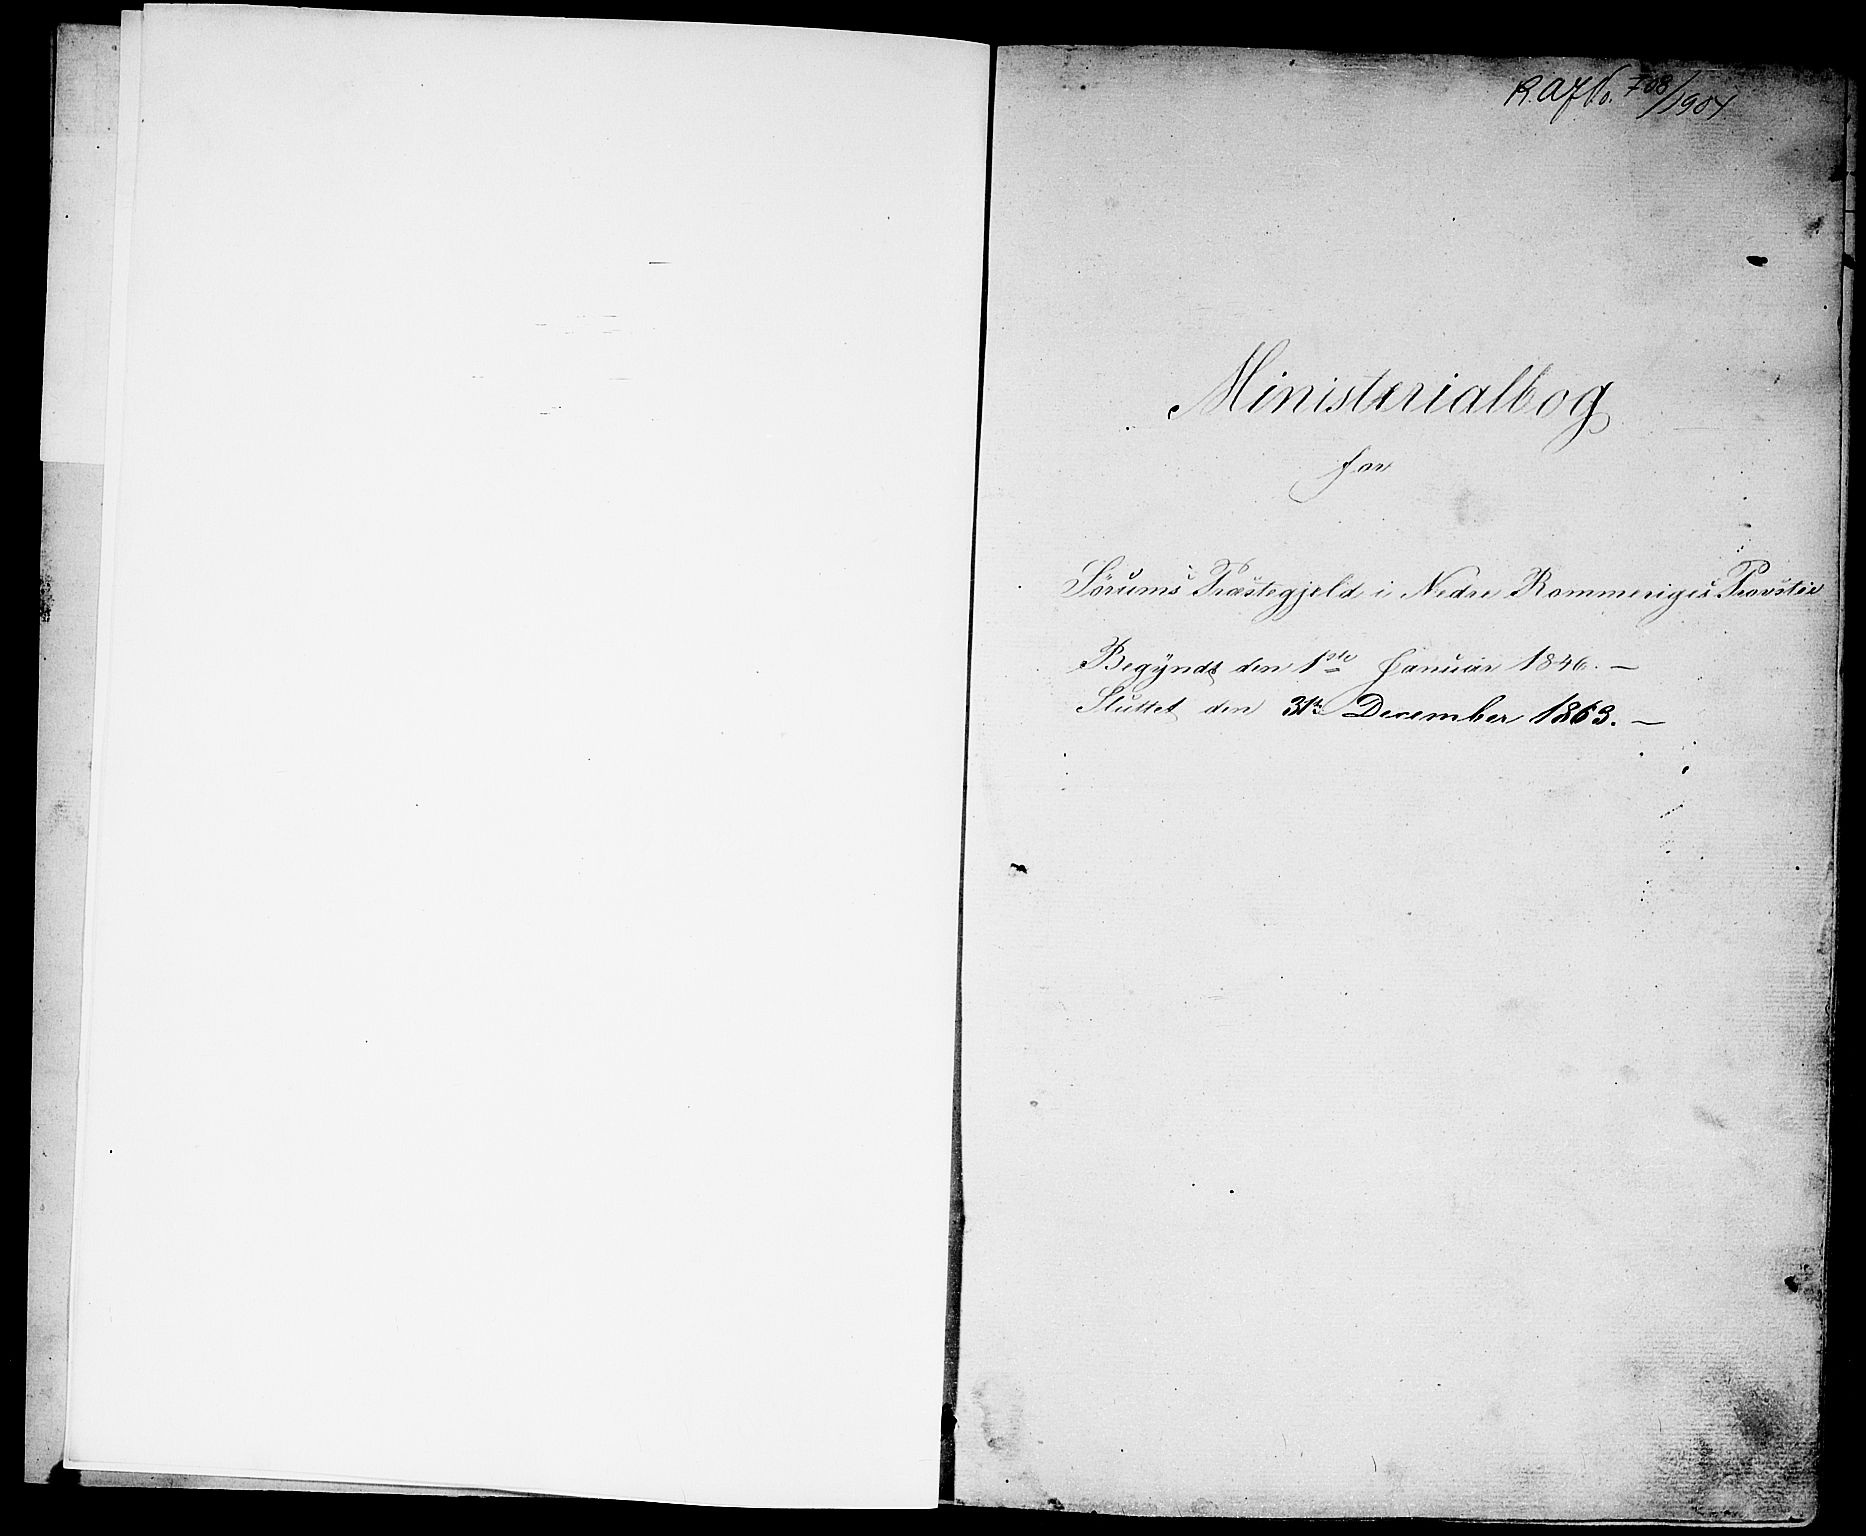 R.A.J.No. 708/1904
Ministerialbog
for
Sørums Præstegjeld i Nedre Rommeriges Provstie
Begyndt den 1ste Januar 1846. —
Sluttet den 31te December 1863. —